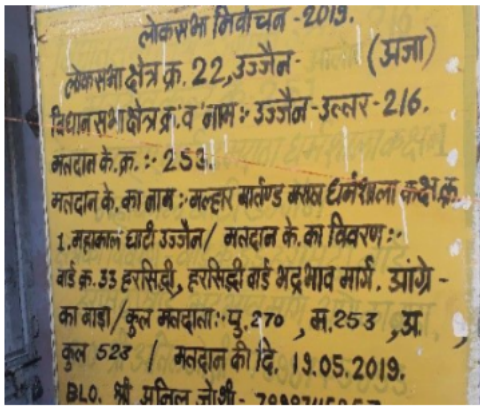 लोकसभा निर्वाचन -2019.
लोकसभा क्षेत्र क्र. 22, उज्जैन- (अजा)
विधानसभा क्षेत्र क्र व नाम :- उज्जैन-उत्तर-216.
मतदान के. क्र. :- 253.
मतदान के. का नाम :- मल्हार मार्तण्ड मराठा धर्मशाला कक्ष क्र.
1. महाकाल घाटी उज्जैन / मतदान के. का विवरण :-
वार्ड क्र. 33 हरसिद्धी, हरसिद्धी वार्ड भद्रभाव मार्ग, आंग्रे -
का बाड़ा / कुल मतदाता :- पु. 270 , म. 253 , अ. ,
कुल 523 / मतदान की दि. 19.05.2019.
BLO. श्री अनिल जोशी -